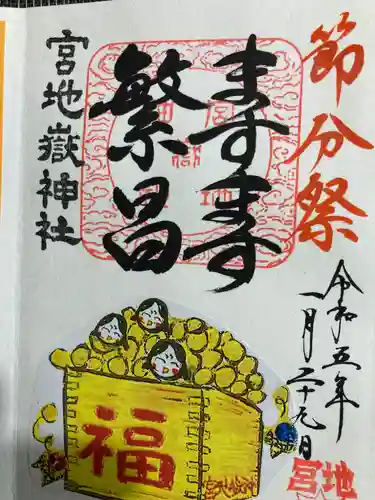 節分祭
ますます
繁昌
宮地嶽神社
令和五年
一月二十九日
福
宮地